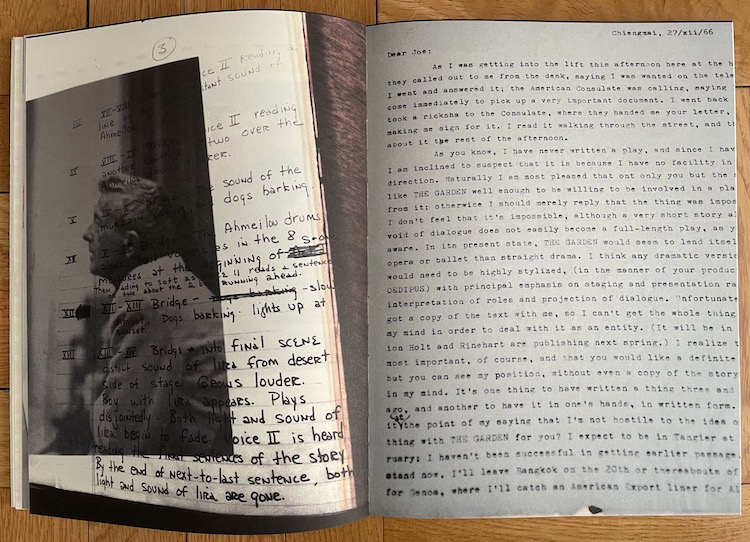 3
ce II Reading a
tent sound of
III VII-VIII
line
Ahmeilou
ice II reading
two over the
IV VIII-IX
another
sound of the
dogs barking.
V
Ahmeilou drums
in the 8
measures at the BEGINNING of
II reads a sentence
Then fading to soft as
about the RUNNING ahead.
XII-XIII Bridge - dogs barking - slow
Dogs barking. lights up at
XIII-XIV Bridge into FINAL SCENE
distant sound of lira from desert
side of stage. Grows louder.
Boy with lira appears. Plays
disjointedly. Both light and sound of
lira begin to fade. Voice II is heard
reading the final sentences of the story
By the end of NEXT-to-last sentence, both
light and sound of lira are gone.
Chiengmai, 27/xii/66
Dear Joe:
As I was getting into the lift this afternoon here at the h
they called out to me from the desk, saying I was wanted on the tele
I went and answered it; the American Consulate was calling, saying
come immediately to pick up a very important document. I went back
took a ricksha to the Consulate, where they handed me your letter,
making me sign for it. I read it walking through the street, and th
about it the rest of the afternoon.
As you know, I have never written a play, and since I hav
I am inclined to suspect that it is because I have no facility in
direction. Naturally I am most pleased that ont only you but the
like THE GARDEN well enough to be willing to be involved in a pla
from it; otherwise I should merely reply that the thing was impos
I don't feel that it's impossible, although a very short story a
void of dialogue does not easily become a full-length play, as y
aware. In its present state, THE GARDEN would seem to lend itsel
opera or ballet than straight drama. I think any dramatic versio
would need to be highly stylized, (in the manner of your produc
OEDIPUS) with principal emphasis on staging and presentation ra
interpretation of roles and projection of dialogue. Unfortunate
got a copy of the text with me, so I can't get the whole thing
my mind in order to deal with it as an entity. (It will be in
ion Holt and Rinehart are publishing next spring.) I realize t
most important, of course, and that you would like a definite
but you can see my position, without even a copy of the story
in my mind. It's one thing to have written a thing three and
ago, and another to have it in one's hands, in written form.
the point of my saying that I'm not hostile to the idea o
thing with THE GARDEN for you? I expect to be in Tangier at
ruary; I haven't been successful in getting earlier passage.
stand now, I'll leave Bangkok on the 20th or thereabouts of
for Genoa, where I'll catch an American Export liner for Al